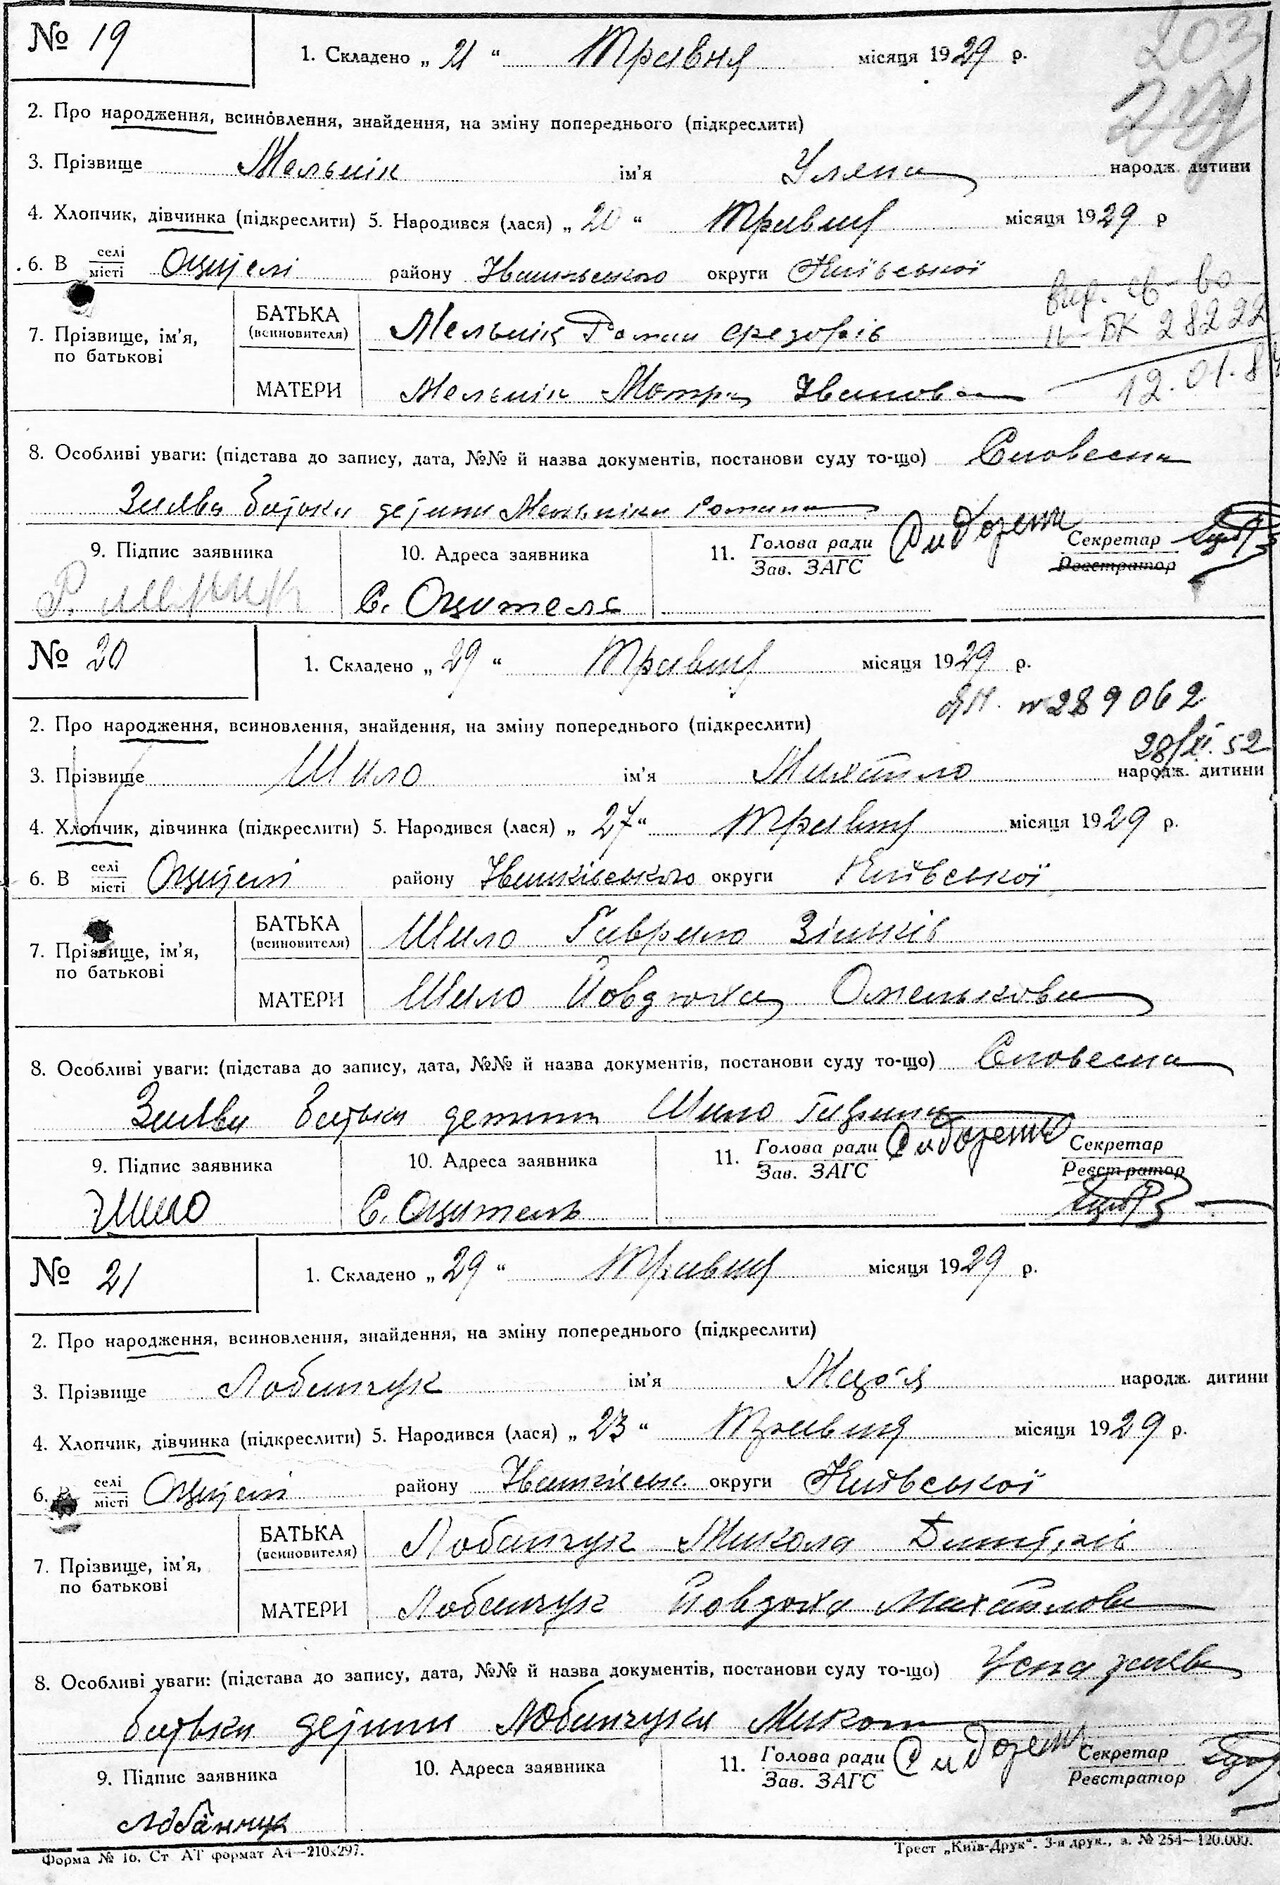 203
№ 19 1. Складено „ 21 “ Травня місяця 1929 р.
2. Про народження, всиновлення, знайдення, на зміну попереднього (підкреслити)
3. Прізвище Мельнік ім'я Уляна народж. дитини
4. Хлопчик, дівчинка (підкреслити) 5. Народився (лася) „ 20 “ Травня місяця 1929 р
6. В селі/місті Ощителі району Іванківського округи Київської
вид. св-во
БАТЬКА (всиновителя) Мельнік Роман
II-БК 28222
7. Прізвище, ім'я, по батькові
12.01.8
МАТЕРИ Мельнік Мотря Іванова
8. Особливі уваги: (підстава до запису, дата, №№ й назва документів, постанови суду то-що) Словесна
Заява батька детини Мельніка Романа
9. Підпис заявника 10. Адреса заявника 11. Голова ради/Зав. ЗАГС Сидорен Секретар/Реєстратор
Р. Мельник С. Ощитель
№ 20 1. Складено „ 29 “ Травня місяця 1929 р.
№ 289062
2. Про народження, всиновлення, знайдення, на зміну попереднього (підкреслити)
28/XI.52
3. Прізвище Шило ім'я Михайло народж. дитини
4. Хлопчик, дівчинка (підкреслити) 5. Народився (лася) „ 27 “ Травня місяця 1929 р.
6. В селі/місті Ощителі району Іванківського округи Київської
БАТЬКА (всиновителя) Шило Гаврило Зіньків
7. Прізвище, ім'я, по батькові
МАТЕРИ Шило Йовдоха Омелькова
8. Особливі уваги: (підстава до запису, дата, №№ й назва документів, постанови суду то-що) Словесна
Заява батька детини Шило Гаврила
9. Підпис заявника 10. Адреса заявника 11. Голова ради/Зав. ЗАГС Сидоренко Секретар/Реєстратор
Шило С. Ощитель
№ 21 1. Складено „ 29 “ Травня місяця 1929 р.
2. Про народження, всиновлення, знайдення, на зміну попереднього (підкреслити)
3. Прізвище Лобанчук ім'я Мар'я народж. дитини
4. Хлопчик, дівчинка (підкреслити) 5. Народився (лася) „ 23 “ Травня місяця 1929 р.
6. В селі/місті Ощителі району Іванківськ округи Київської
БАТЬКА (всиновителя) Лобанчук Микола Дмитрів
7. Прізвище, ім'я, по батькові
МАТЕРИ Лобанчук Йовдоха Михайлова
8. Особливі уваги: (підстава до запису, дата, №№ й назва документів, постанови суду то-що) Усна заява
батька детини Лобанчука Микол
9. Підпис заявника 10. Адреса заявника 11. Голова ради/Зав. ЗАГС Сидорен Секретар/Реєстратор
Лобанчук
Форма № 16. Ст АТ формат А4—210x297. Трест „Київ-Друк“. 3-я друк., з. № 254—120.000.